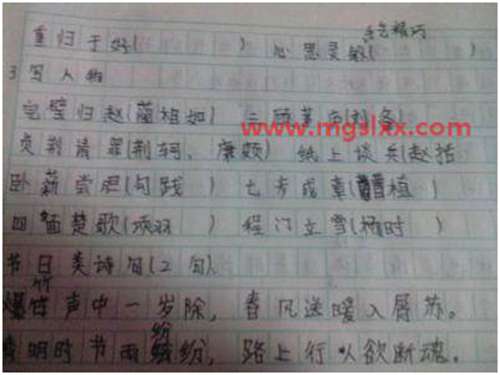 精巧
重归于好( ) 心思灵敏(
3写人物
完璧归赵(蔺相如) 三顾茅庐(刘备)
www.mgslxx.com
负荆请罪(荆轲、廉颇) 纸上谈兵(赵括
卧薪尝胆(勾践 ) 七步成章(曹植)
四面楚歌(项羽 ) 程门立雪(杨时 )
节日美诗句(2句)
爆竹声中一岁除，春风送暖入屠苏。
清明时节雨纷纷，路上行人欲断魂。